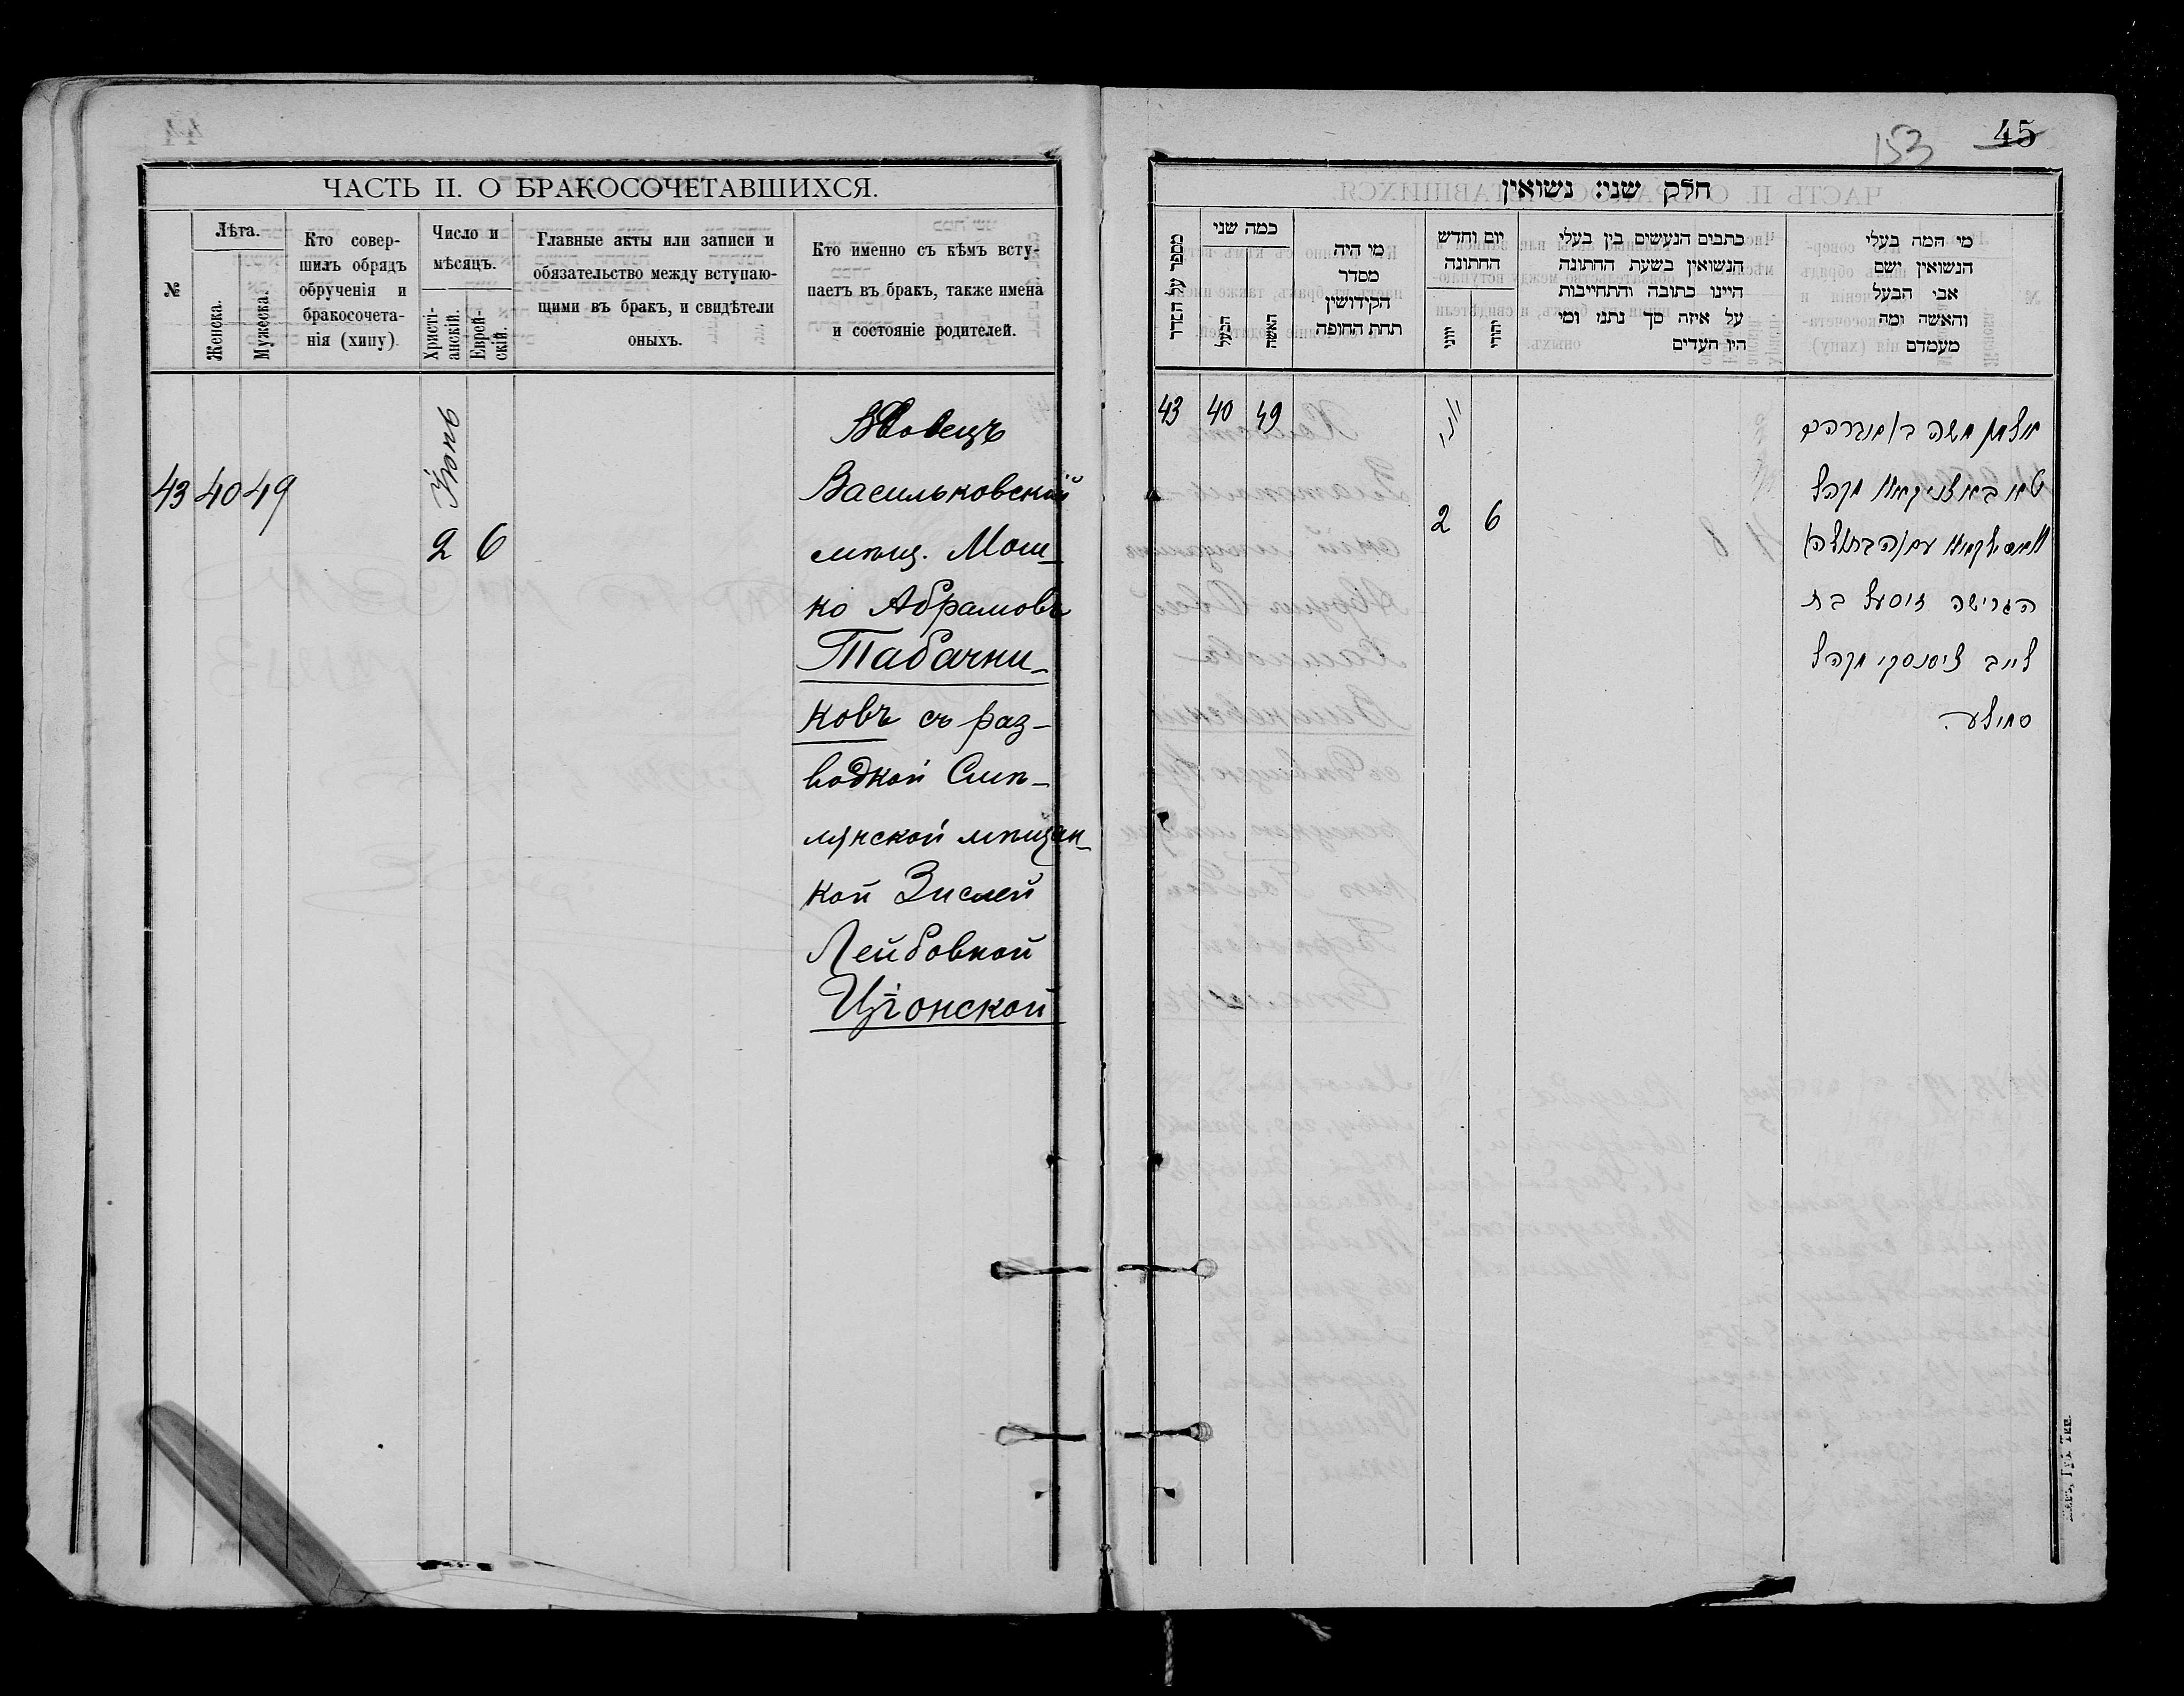 ЧАСТЬ II. О БРАКОСОЧЕТАВШИХСЯ.
№
Лѣта.
Женска.
Мужеска.
Кто совер-
шилъ обрядъ
обрученія и
бракосочета-
нія (хипу)
Число и
мѣсяцъ.
Христі-
анскій.
Еврей-
скій.
Главные акты или записи и
обязательство между вступаю-
щими въ бракъ, и свидѣтели
оныхъ.
Кто именно съ кѣмъ всту-
паетъ въ бракъ, также имена
и состояніе родителей.
43 40 49
Іюнь
2 6
Вдовецъ
Васильковскій
мѣщ. Мош-
ко Абрамовъ
Табачни-
ковъ съ раз-
водкой Смѣ-
лянской мѣщан-
кой Зислей
Лейбовной
Ціонской
153
45
חלק שני: נשואין
מספר על הסדר
כמה שני
הבעל
האשה
מי היה
מסדר
הקידושין
תחת החופה
יום וחדש
החתונה
יוני
יהודי
כתבים הנעשים בין בעלי
הנשואין בשעת החתונה
היינו כתובה והתחייבות
על איזה סך נתנו ומי
היו העדים
מי המה בעלי
הנשואין ושם
אבי הבעל
והאשה ומה
מעמדם
43 40 49
יוני
2 6
אלמן משה ב
מקהל
עם
הגרושה זיסעל בת
לייב מקהל
סמילע.